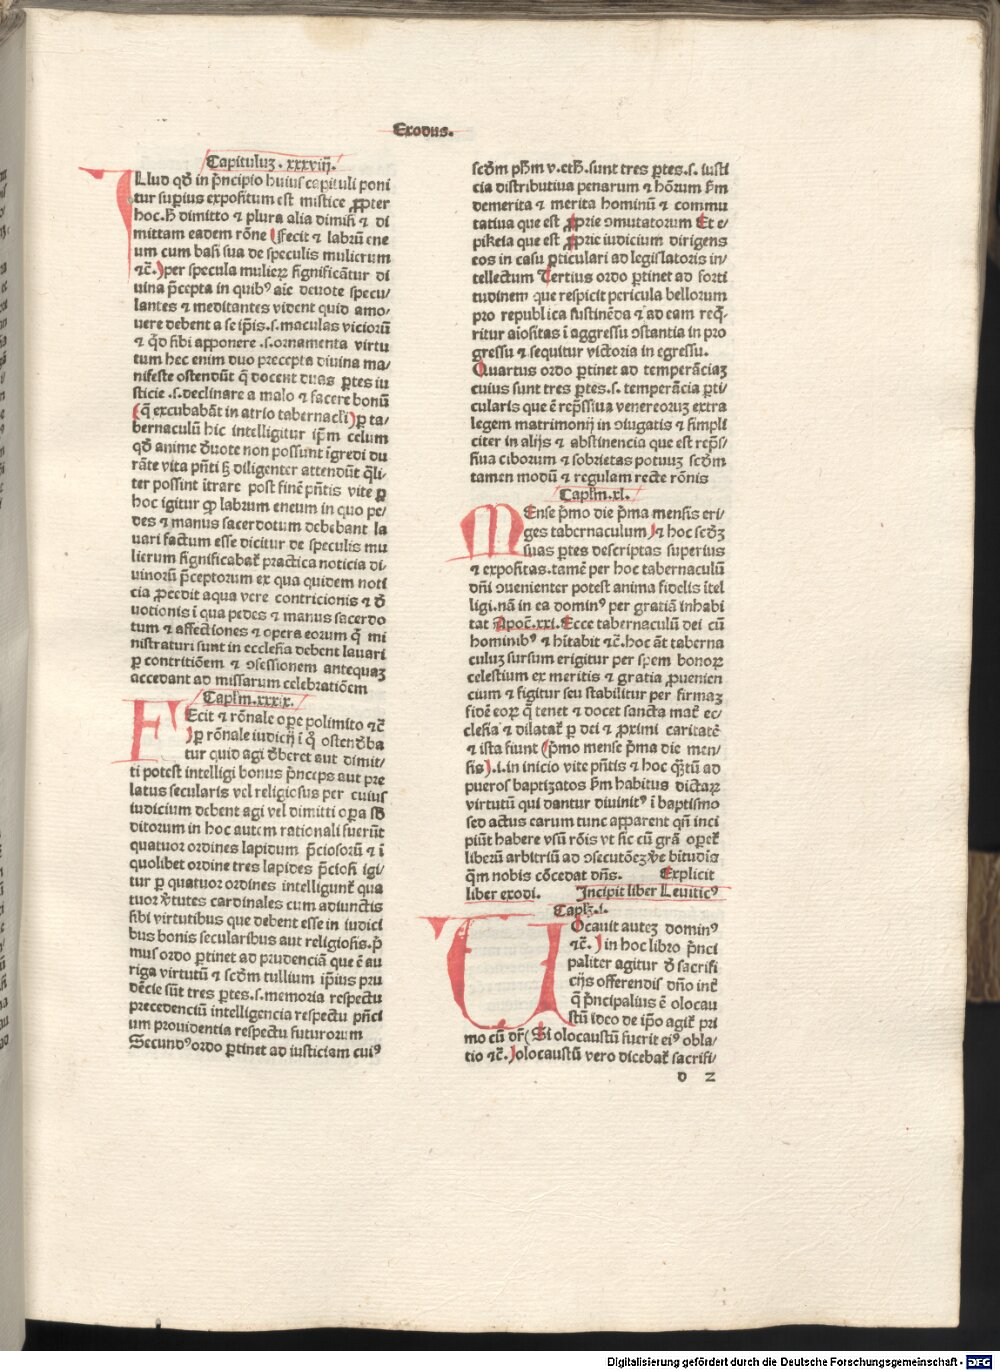 Exodus.
Capituluꝫ. xxxviij.
Illud qd̓ in pͥncipio huius capituli poni
tur suꝑius expositum est mistice ꝓpter
hoc. H̓ dimitto ⁊ plura alia dimisi ⁊ di
mittam eadem rōne (fecit ⁊ labrū ene
um cum basi sua de speculis mulierum
⁊c̄.) per specula mulieꝝ significātur di
uina p̄cepta in quibꝰ aīe deuote specu/
lantes ⁊ meditantes vident quid amo/
uere debent a se ip̄is .s. maculas vicioꝝ
⁊ qd̓ sibi apponere .s. ornamenta virtu
tum hec enim duo precepta diuina ma/
nifeste ostendūt q̄ docent duas ꝑtes iu
sticie .s. declinare a malo ⁊ facere bonū
(q̄ excubabāt in atrio tabernacli) ꝑ ta/
bernaculū hic intelligitur ip̄m celum
qd̓ anime deuote non possunt īgredi du
rāte vita pn̄ti sꝫ diligenter attendūt qͣli/
ter possint ītrare post finē pn̄tis vite ꝑ
hoc igitur ꝙ labrum eneum in quo pe/
des ⁊ manus sacerdotum debebant la
uari factum esse dicitur de speculis mu
lierum significabat̄ practica noticia di/
uinorū p̄ceptorum ex qua quidem noti
cia ꝓcedit aqua vere contricionis ⁊ de
uotionis ī qua pedes ⁊ manus sacerdo
tum ⁊ affectiones ⁊ opera eorum q̄ mi
nistraturi sunt in ecclesia debent lauari
ꝑ contritiōem ⁊ ↄfessionem antequaꝫ
accedant ad missarum celebratiōem
Caplm̄. xxxix.
FEcit ⁊ rōnale oꝑe polimito ⁊c̄
) ꝑ rōnale iudicij ī q̊ ostendeba
tur quid agi deberet aut dimit/
ti potest intelligi bonus pͥnceps aut pre
latus secularis vel religiosus per cuius
iudicium debent agi vel dimitti oꝑa sb̓
ditorum in hoc autem rationali fuerūt
quatuor ordines lapidum p̄ciosorū ⁊ ī
quolibet ordine tres lapides p̄ciosi igi/
tur ꝑ quatuor ordines intelligunt̄ qua
tuor v̓tutes cardinales cum adiunctis
sibi virtutibus que debent esse in iudici
bus bonis secularibus aut religiosis. pͥ
mus ordo ꝑtinet ad prudenciā que ē au
riga virtutū ⁊ scd̓m tullium ipsius pru
dēcie sūt tres ꝑtes .s. memoria respectu
precedenciū intelligencia respectu pn̄ci
um prouidentia respectu futurorum
Secundꝰ ordo ꝑtinet ad iusticiam cuiꝰ
scd̓m ph̄m v. eth̄. sunt tres ꝑtes .s. iusti
cia distributiua penarum ⁊ hōrum sm̄
demerita ⁊ merita hominū ⁊ commu
tatiua que est ꝓprie ↄmutatorum Et e/
pikeia que est ꝓprie iudicium dirigens
eos in casu ꝑticulari ad legislatoris in/
tellectum Tertius ordo ꝑtinet ad forti
tudinem que respicit pericula bellorum
pro republica sustinēda ⁊ ad eam req̄/
ritur aīositas ī aggressu ↄstantia in pro
gressu ⁊ sequitur victoria in egressu.
Quartus ordo ꝑtinet ad temperāciaꝫ
cuius sunt tres ꝑtes .s. temperācia ꝑti/
cularis que ē rep̄ssiua venereoruꝫ extra
legem matrimonij in ↄiugatis ⁊ simpli
citer in alijs ⁊ abstinencia que est rep̄s/
siua ciborum ⁊ sobrietas potuuꝫ scd̓m
tamen modū ⁊ regulam recte rōnis
Caplm̄. xl.
MEnse pͥmo die pͥma mensis eri/
ges tabernaculum) ⁊ hoc scd̓ꝫ
suas ꝑtes descriptas superius
⁊ expositas. tamē per hoc tabernaculū
dn̄i ↄuenienter potest anima fidelis ītel
ligi. nā in ea dominꝰ per gratiā inhabi
tat Apoc̄. xxi. Ecce tabernaculū dei cū
hominibꝰ ⁊ hītabit ⁊c̄. hoc āt taberna
culuꝫ sursum erigitur per spem bonoꝝ
celestium ex meritis ⁊ gratia ꝓuenien
cium ⁊ figitur seu stabilitur per firmaꝫ
fidē eoꝝ q̄ tenet ⁊ docet sancta mat̄ ec/
clesia ⁊ dilatat̄ ꝑ dei ⁊ ꝓximi caritatē
⁊ ista fiunt (pͥmo mense pͥma die men/
sis) .i. in inicio vite pn̄tis ⁊ hoc q̄ꝫtū ad
pueros baptizatos sm̄ habitus dictaꝝ
virtutū qui dantur diuinitꝰ ī baptismo
sed actus earum tunc apparent qn̄ inci
piūt habere vsū rōis vt sic cū grā oꝑet̄
liberū arbitriū ad ↄsecutōeꝫ v̓e bitudīs
q̄m nobis cōcedat dn̄s. Explicit
liber exodi. Incipit liber Leuiticꝰ
Caplꝫ. i.
VOcauit auteꝫ dominꝰ
⁊c̄.) in hoc libro pͥnci
paliter agitur de sacrifi
cijs offerendis dn̄o int̄
q̄ pͥncipalius ē olocau
stū ideo de ip̄o agit̄ pri
mo cū dr̄ (Si olocaustū fuerit eiꝰ obla/
tio ⁊c̄.) olocaustū vero dicebat̄ sacrifi/
d 2
Digitalisierung gefördert durch die Deutsche Forschungsgemeinschaft - DFG